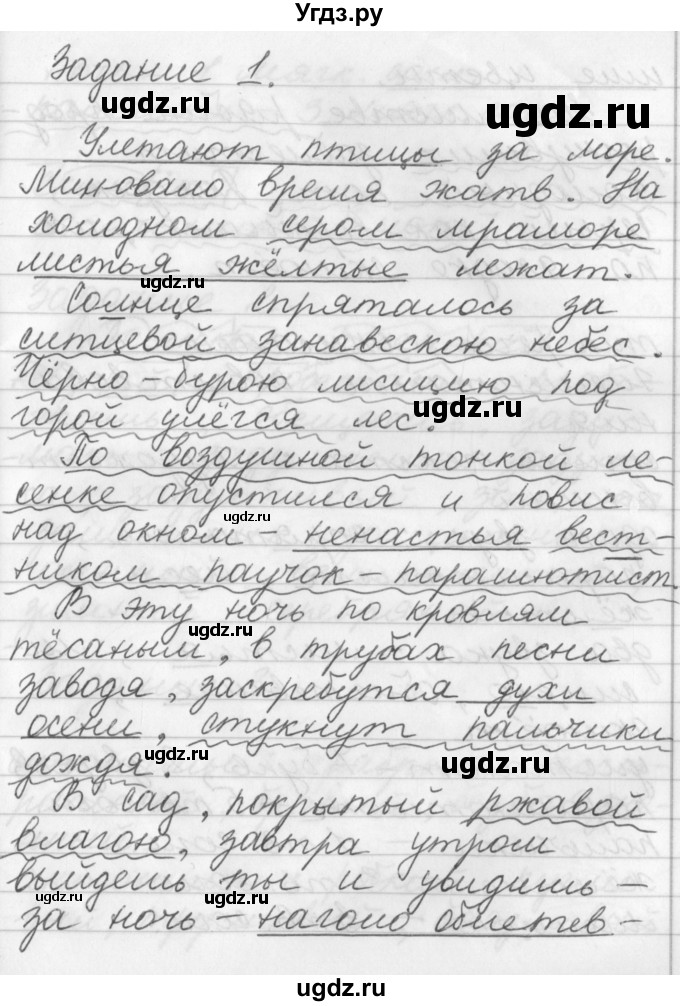 Угдз.ру
Задание 1.
ugdz.ru
ugdz.ru
Улетают птицы за море.
Миновало время жатв. На
холодном сером мраморе
листья жёлтые лежат.
ugdz.ru
Солнце спряталось за
ситцевой занавескою небес.
Чёрно-бурою лисицею под
ugdz.ru
горой улёгся лес.
По воздушной тонкой ле-
сенке опустился и повис
ugdz.ru
над окном - ненастья вест-
ником паучок-парашютист.
В эту ночь по кровлям
ugdz.ru
тёсаным, в трубах песни
заводя, заскребутся духи
осени, стукнут пальчики
дождя.
ugdz.ru
ugdz.ru
В сад, покрытый ржавой
влагою, завтра утром
выйдешь ты и увидишь -
ugdz.ru
за ночь - наголо облетев-
ugdz.ru